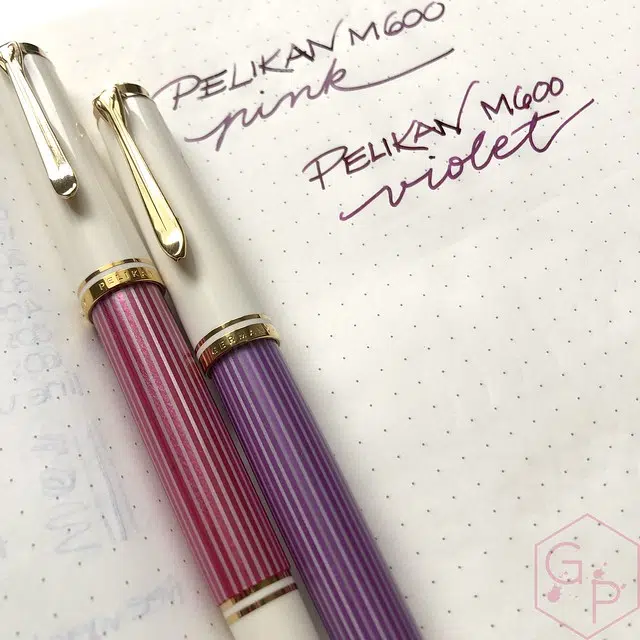 PELIKAN M600
pink
PELIKAN M600
violet
PELIKAN
G
P